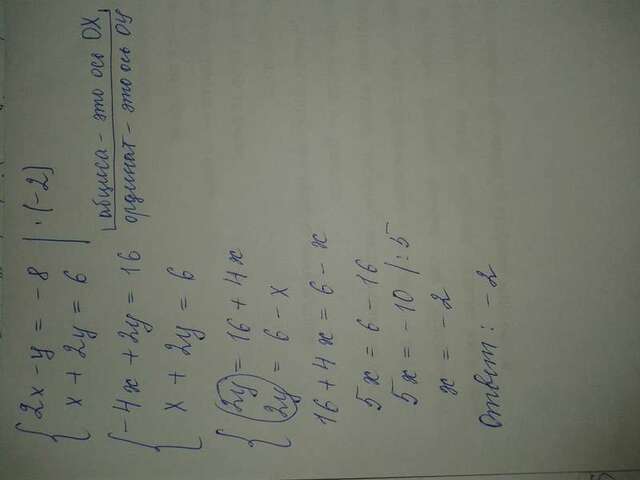 2x - y = -8 | · (-2)
x + 2y = 6
абциса - это ось OX
ординат - это ось OY
-4x + 2y = 16
x + 2y = 6
2y = 16 + 4x
2y = 6 - x
16 + 4x = 6 - x
5x = 6 - 16
5x = -10 | : 5
x = -2
Ответ: -2